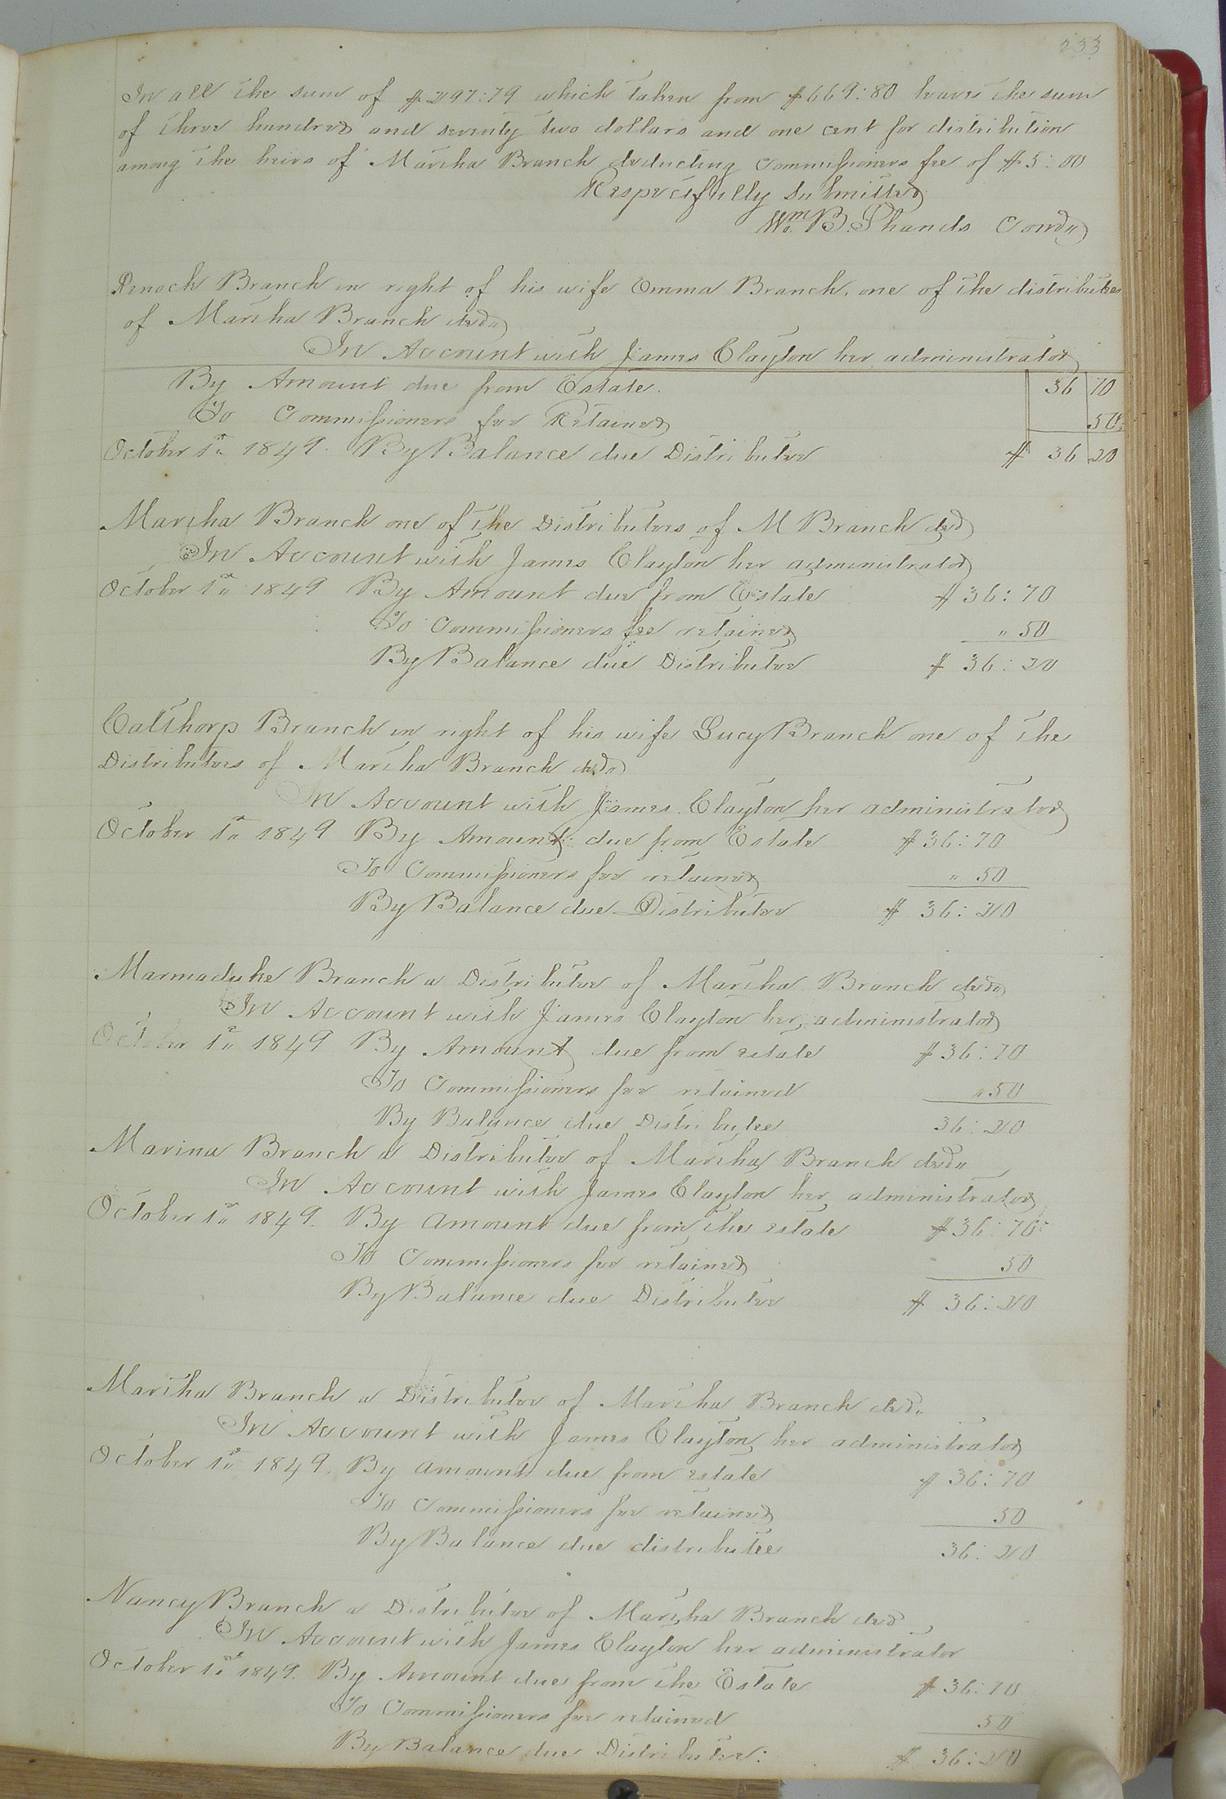 233
In all the sum of $297:79 which taken from $669:80 leaves the sum
of three hundred and seventy two dollars and one cent for distribution
among the heirs of Martha Branch deducting Commissioners fee of $5:00
Respectfully Submitted
Wm B. Shands Comdr
Enoch Branch in right of his wife Emma Branch, one of the distributees
of Martha Branch decd
In Account with James Clayton her administrator
By Amount due from Estate. 36 70
To Commissioners fee Retained 50
October 1st 1849. By Balance due Distributee $ 36 20
Martha Branch one of the Distributees of M Branch decd
In Account with James Clayton her administrator
October 1st 1849 By Amount due from Estate $36:70
To Commissioners fee retained " 50
By Balance due Distributee $ 36:20
Calthorp Branch in right of his wife Lucy Branch one of the
Distributees of Martha Branch decd
In Account with James Clayton her administrator
October 1st 1849 By Amount due from Estate $36:70
To Commissioners fee retained " 50
By Balance due Distributee $ 36:20
Marmaduke Branch a Distributee of Martha Branch decd
In Account with James Clayton her administrator
October 1st 1849 By Amount due from estate $36:70
To Commissioners fee retained " 50
By Balance due Distributee 36:20
Marina Branch a Distributee of Martha Branch decd
In Account with James Clayton her administrator
October 1st 1849. By amount due from the estate $36:70
To Commissioners fee retained 50
By Balance due Distributee $ 36:20
Martha Branch a Distributee of Martha Branch decd.
In Account with James Clayton her administrator
October 1st 1849. By amount due from estate $36:70
To Commissioners fee retained 50
By Balance due distributee 36:20
Nancy Branch a Distributee of Martha Branch decd
In Account with James Clayton her administrator
October 1st 1849. By Amount due from the Estate $36:70
To Commissioners fee retained 50
By Balance due Distributee: $ 36:20